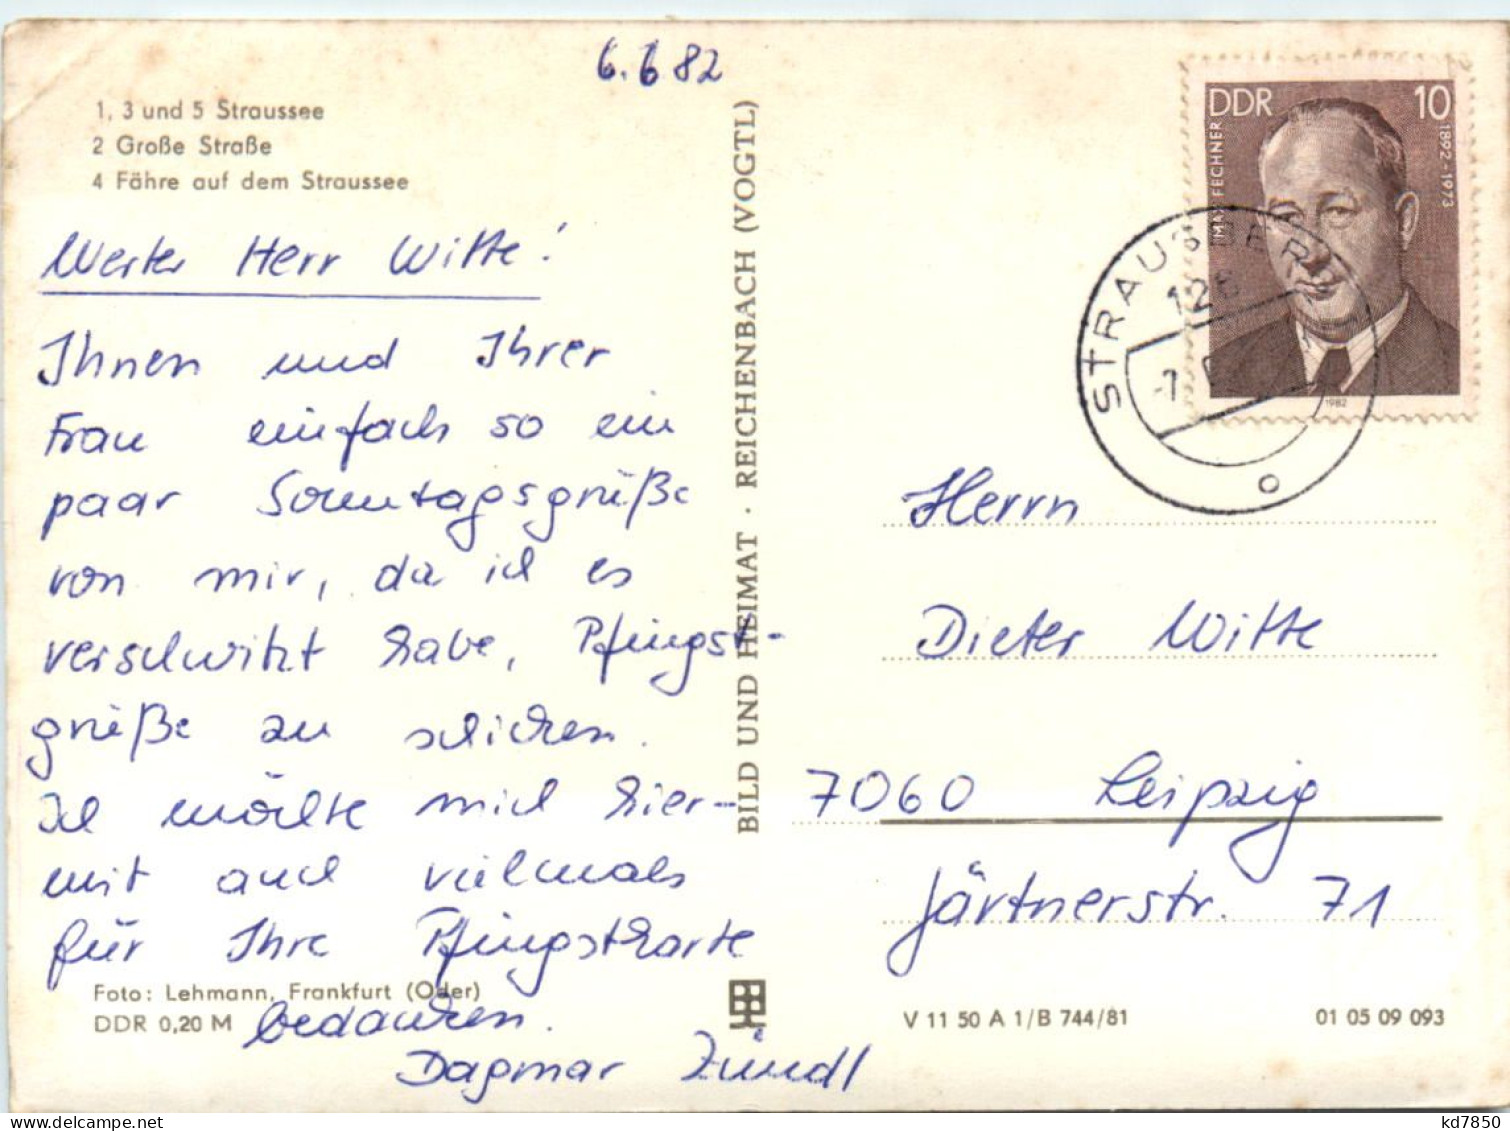 6.6.82
1, 3 und 5 Straussee
2 Große Straße
4 Fähre auf dem Straussee
Werter Herr Witte!
Ihnen und Ihrer
Frau einfach so ein
paar Sonntagsgrüße
von mir, da ich es
verschwitzt habe, Pfingst-
grüße zu schicken.
Ich möchte mich hier-
mit auch vielmals
für Ihre Pfingstkarte
bedanken.
Dagmar Zündl
Foto: Lehmann, Frankfurt (Oder)
DDR 0,20 M
BILD UND HEIMAT · REICHENBACH (VOGTL)
DDR 10
MAX FECHNER
1892-1973
1982
STRAUSBERG
126
-7
Herrn
Dieter Witte
7060 Leipzig
Gärtnerstr. 71
V 11 50 A 1/B 744/81
01 05 09 093
kd7850